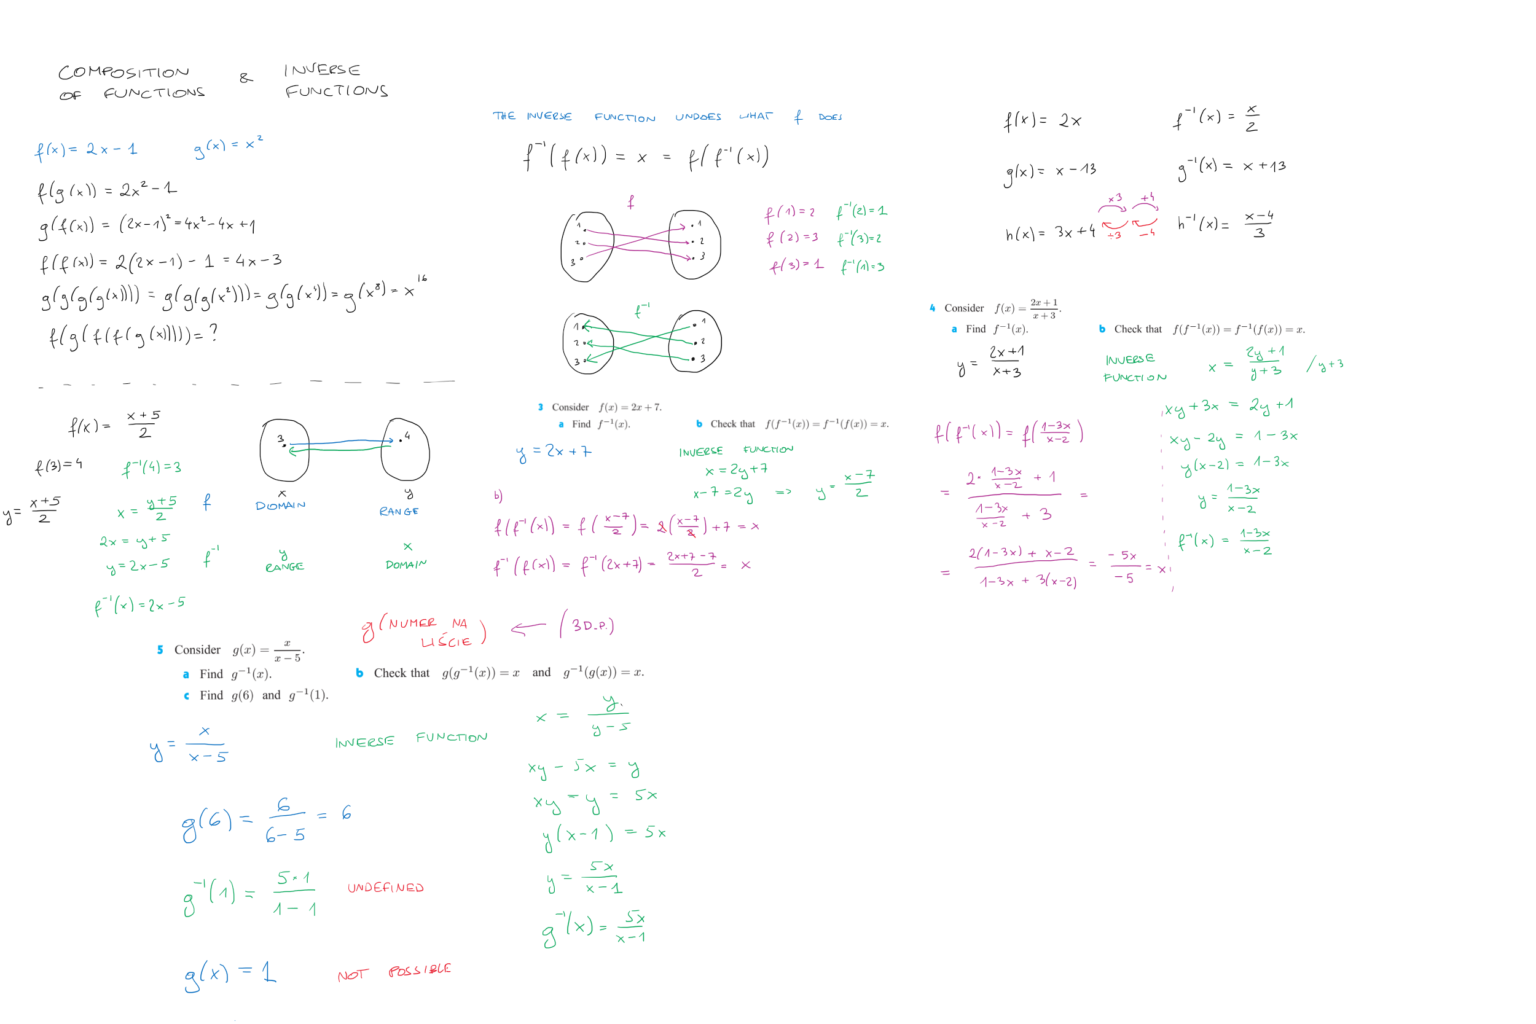 COMPOSITION OF FUNCTIONS & INVERSE FUNCTIONS
f(x) = 2x - 1 g(x) = x²
f(g(x)) = 2x² - 1
g(f(x)) = (2x-1)² = 4x² - 4x + 1
f(f(x)) = 2(2x-1) - 1 = 4x - 3
g(g(g(g(x)))) = g(g(g(x²))) = g(g(x⁴)) = g(x⁸) = x¹⁶
f(g(f(f(g(x))))) = ?
f(x) = (x+5)/2
f(3) = 4 f⁻¹(4) = 3
y = (x+5)/2
x = (y+5)/2 f
2x = y+5
y = 2x-5 f⁻¹
f⁻¹(x) = 2x-5
3 4
x y
DOMAIN RANGE
y x
RANGE DOMAIN
THE INVERSE FUNCTION UNDOES WHAT f DOES
f⁻¹(f(x)) = x = f(f⁻¹(x))
f
1 1
2 2
3 3
f(1) = 2 f⁻¹(2) = 1
f(2) = 3 f⁻¹(3) = 2
f(3) = 1 f⁻¹(1) = 3
f⁻¹
1 1
2 2
3 3
3 Consider f(x) = 2x + 7.
a Find f⁻¹(x). b Check that f(f⁻¹(x)) = f⁻¹(f(x)) = x.
y = 2x+7
INVERSE FUNCTION
x = 2y+7
x-7 = 2y => y = (x-7)/2
b)
f(f⁻¹(x)) = f((x-7)/2) = 2((x-7)/2) + 7 = x
f⁻¹(f(x)) = f⁻¹(2x+7) = (2x+7-7)/2 = x
f(x) = 2x f⁻¹(x) = x/2
g(x) = x - 13 g⁻¹(x) = x + 13
x3 +4
h(x) = 3x+4 h⁻¹(x) = (x-4)/3
÷3 -4
4 Consider f(x) = (2x+1)/(x+3).
a Find f⁻¹(x). b Check that f(f⁻¹(x)) = f⁻¹(f(x)) = x.
y = (2x+1)/(x+3)
INVERSE FUNCTION x = (2y+1)/(y+3) /y+3
xy + 3x = 2y + 1
xy - 2y = 1 - 3x
y(x-2) = 1-3x
y = (1-3x)/(x-2)
f⁻¹(x) = (1-3x)/(x-2)
f(f⁻¹(x)) = f((1-3x)/(x-2))
= (2·(1-3x)/(x-2) + 1)/((1-3x)/(x-2) + 3) =
= (2(1-3x) + x-2)/(1-3x + 3(x-2)) = -5x/-5 = x
g(NUMER NA LIŚCIE) ← (3 D.P.)
5 Consider g(x) = x/(x-5).
a Find g⁻¹(x). b Check that g(g⁻¹(x)) = x and g⁻¹(g(x)) = x.
c Find g(6) and g⁻¹(1).
y = x/(x-5)
INVERSE FUNCTION x = y/(y-5)
xy - 5x = y
xy - y = 5x
y(x-1) = 5x
y = 5x/(x-1)
g⁻¹(x) = 5x/(x-1)
g(6) = 6/(6-5) = 6
g⁻¹(1) = 5·1/(1-1) UNDEFINED
g(x) = 1 NOT POSSIBLE